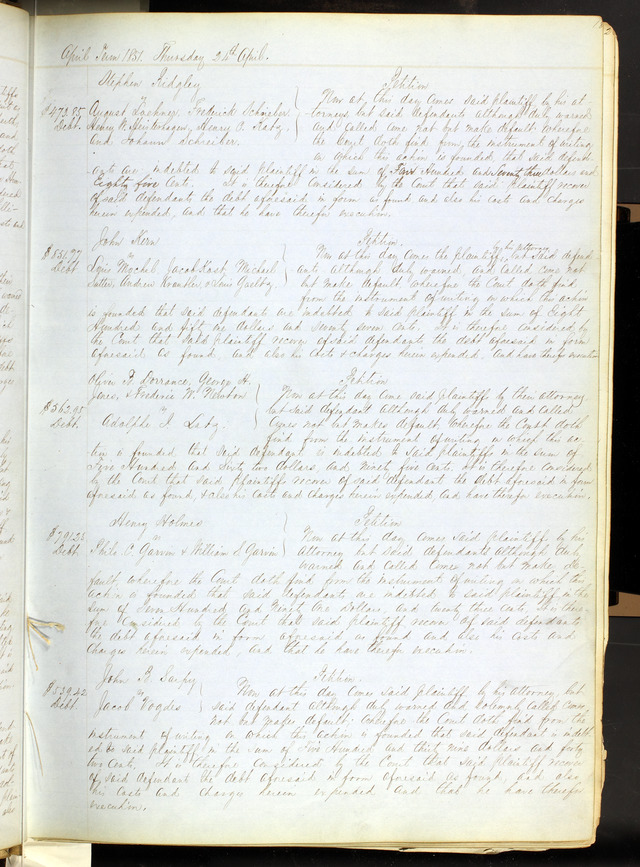 April Term 1851. Thursday 24th April.
Stephen Ridgley } Petition
vs
$473.85 Debt. August Lachner, Frederick Schrieber, Henry W. and Johann Schreiber.
Now at this day comes said plaintiff by his attorney, but said defendants although duly warned
and called come not but make default wherefore
the Court doth find from the instrument of writing
on which this action is founded that said defend-
ants are indebted to said plaintiff in the sum of Four Hundred and Seventy three dollars and
Eighty five cents. It is therefore Considered by the Court that said plaintiff recover
of said defendants the debt aforesaid in form as found and also his costs and charges
herein expended, and that he have therefor execution.
John Kern } Petition.
vs
$851.77 Debt Louis Jacob Michael Andrew & Louis
Now at this day comes the plaintiff, by his attorney but said defend-
ants although duly warned, and called come not
but make default wherefore the Court doth find
from the instrument of writing on which this action
is founded that said defendants are indebted to said plaintiff in the sum of Eight
Hundred and fifty one dollars and seventy seven cents. It is therefore considered by
the Court that said plaintiff recover of said defendants the debt aforesaid in form
aforesaid as found. And also his costs & charges herein expended. And have therefor execution
Oliver B. Dorrance, George H. } Petition
Jones, & Frederic W. Newton
vs
$362.95 Debt. Adolphe J. Letz.
Now at this day come said plaintiffs by their attorney
but said defendant although duly warned and called
comes not but makes default wherefore the Court doth
find from the instrument of writing on which this ac-
tion is founded that said defendant is indebted to said plaintiffs in the sum of
Three Hundred and Sixty two dollars and Ninety five cents. It is therefore Considered
by the Court that said plaintiffs recover of said defendant the debt aforesaid in form
aforesaid as found, & also his costs and charges herein expended and have therefor execution.
Henry Holmes } Petition
vs
$791.23 Debt Philo C. Garvin & William S. Garvin
Now at this day comes said plaintiff by his
attorney but said defendants although duly
warned and called comes not but make de-
fault, wherefore the Court doth find from the instrument of writing on which this
action is founded that said defendants are indebted to said plaintiff in the
sum of Seven Hundred and Ninety One dollars and twenty three cents. It is there-
fore Considered by the Court that said plaintiff recover of said defendants
the debt aforesaid in form aforesaid as found and also his costs and
charges herein expended, and that he have therefor execution.
John B. Sarpy } Petition.
vs
$539.42 Debt Jacob Vogdes
Now at this day comes said plaintiff by his attorney but
said defendant although duly warned and solemnly called comes
not but makes default; wherefore the Court doth find from the
instrument of writing on which this action is founded that said defendant is indebt
ed to said plaintiff in the sum of Five Hundred and thirty nine dollars and forty
two cents. It is therefore considered by the Court that said plaintiff recover
of said defendant the debt aforesaid in form aforesaid as found, and also
his costs and charges herein expended and that he have therefor
execution.